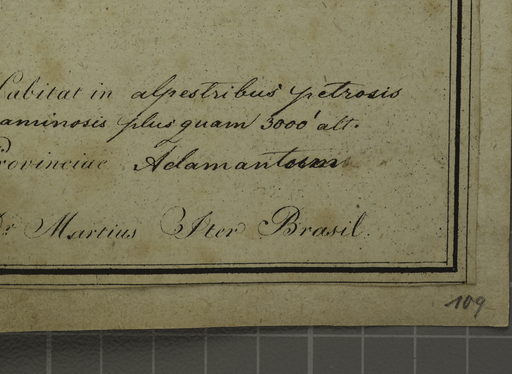 Habitat in alpestribus petrosis
graminosis plus quam 3000' alt.
Provinciae Adamantum
Dr Martius Iter Brasil.
109